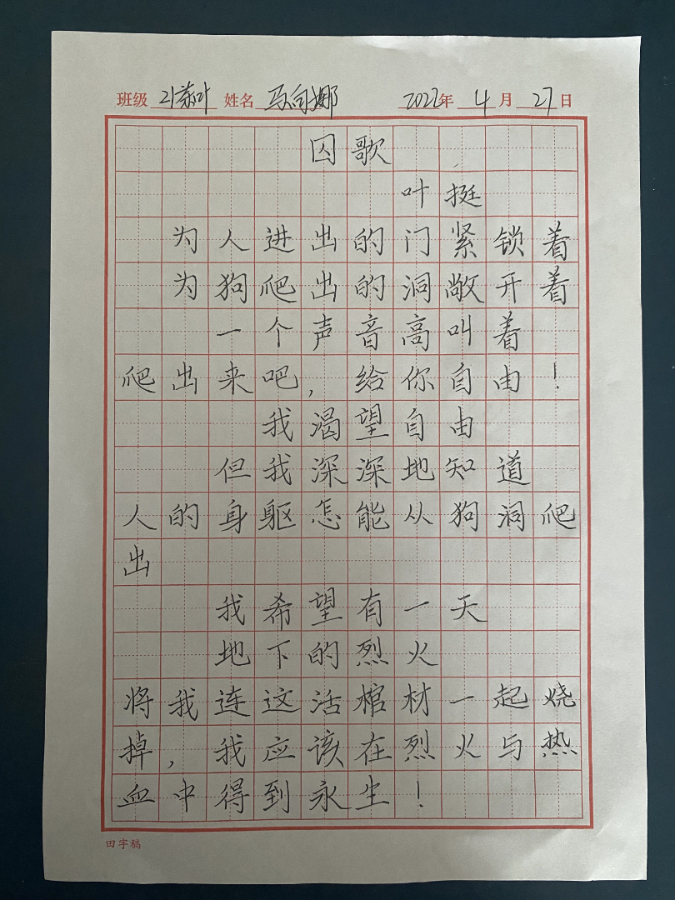 班级 21茶叶 姓名 马向娜 2022年 4月 27日
囚歌
叶挺
为人进出的门紧锁着
为狗爬出的洞敞开着
一个声音高叫着
爬出来吧,给你自由!
我渴望自由
但我深深地知道
人的身躯怎能从狗洞爬
出
我希望有一天
地下的烈火
将我连这活棺材一起烧
掉,我应该在烈火与热
血中得到永生!
田字稿